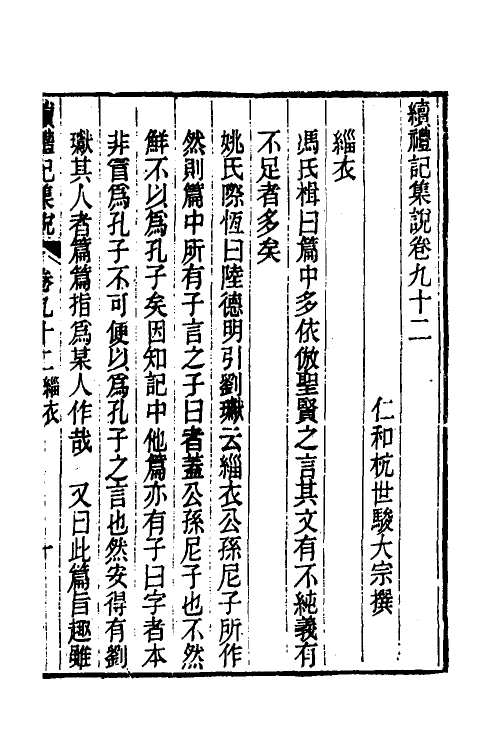 續禮記集說卷九十二
仁和杭世駿大宗撰
緇衣
馮氏楫曰篇中多依倣聖賢之言其文有不純義有
不足者多矣
姚氏際恆曰陸德明引劉瓛云緇衣公孫尼子所作
然則篇中所有子言之子曰者蓋公孫尼子也不然
鮮不以為孔子矣因知記中他篇亦有子曰字者本
非言為孔子不可便以為孔子之言也然安得有劉
瓛其人者篇篇指為某人作哉 又曰此篇旨趣雖
續禮記集說 卷九十二 緇衣 一